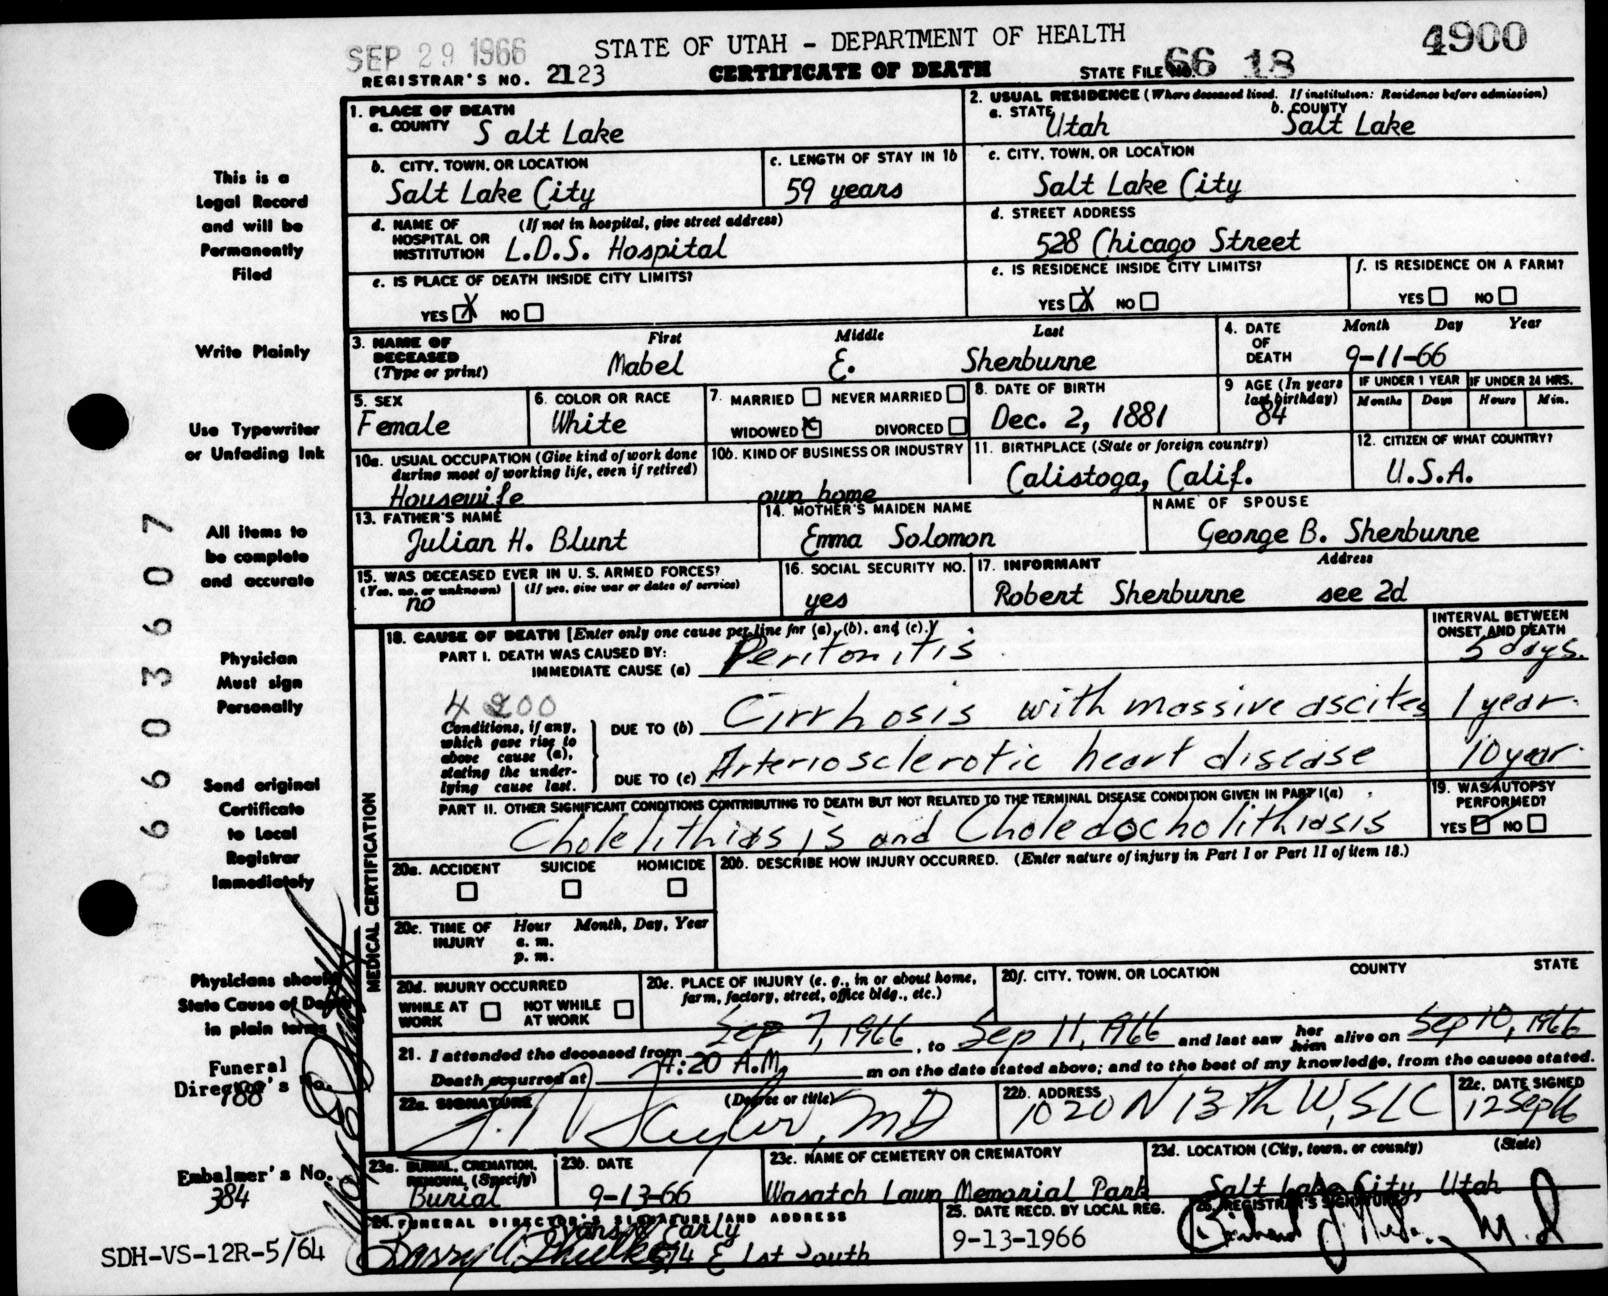 SEP 29 1966
STATE OF UTAH - DEPARTMENT OF HEALTH
4900
REGISTRAR'S NO. 2123
CERTIFICATE OF DEATH
STATE FILE NO. 66 18
1. PLACE OF DEATH
a. COUNTY Salt Lake
2. USUAL RESIDENCE (Where deceased lived. If institution: Residence before admission)
a. STATE Utah b. COUNTY Salt Lake
b. CITY, TOWN, OR LOCATION Salt Lake City
c. LENGTH OF STAY IN 1b 59 years
c. CITY, TOWN, OR LOCATION Salt Lake City
d. NAME OF HOSPITAL OR INSTITUTION (If not in hospital, give street address) L.D.S. Hospital
d. STREET ADDRESS 528 Chicago Street
e. IS PLACE OF DEATH INSIDE CITY LIMITS?
YES X NO
e. IS RESIDENCE INSIDE CITY LIMITS?
YES X NO
f. IS RESIDENCE ON A FARM?
YES NO
3. NAME OF DECEASED (Type or print)
First Middle Last
Mabel E. Sherburne
4. DATE OF DEATH Month Day Year
9-11-66
5. SEX Female
6. COLOR OR RACE White
7. MARRIED NEVER MARRIED
WIDOWED X DIVORCED
8. DATE OF BIRTH Dec. 2, 1881
9 AGE (In years last birthday) 84
IF UNDER 1 YEAR Months Days
IF UNDER 24 HRS. Hours Min.
10a. USUAL OCCUPATION (Give kind of work done during most of working life, even if retired) Housewife
10b. KIND OF BUSINESS OR INDUSTRY own home
11. BIRTHPLACE (State or foreign country) Calistoga, Calif.
12. CITIZEN OF WHAT COUNTRY? U.S.A.
13. FATHER'S NAME Julian H. Blunt
14. MOTHER'S MAIDEN NAME Emma Solomon
NAME OF SPOUSE George B. Sherburne
15. WAS DECEASED EVER IN U. S. ARMED FORCES?
(Yes, no, or unknown) (If yes, give war or dates of service)
no
16. SOCIAL SECURITY NO. yes
17. INFORMANT Address
Robert Sherburne see 2d
18. CAUSE OF DEATH [Enter only one cause per line for (a), (b), and (c).]
INTERVAL BETWEEN ONSET AND DEATH
PART I. DEATH WAS CAUSED BY:
IMMEDIATE CAUSE (a) Peritonitis 5 days.
4200
Conditions, if any, which gave rise to above cause (a), stating the underlying cause last.
DUE TO (b) Cirrhosis with massive ascites 1 year.
DUE TO (c) Arteriosclerotic heart disease 10 year.
PART II. OTHER SIGNIFICANT CONDITIONS CONTRIBUTING TO DEATH BUT NOT RELATED TO THE TERMINAL DISEASE CONDITION GIVEN IN PART I(a)
Cholelithiasis and Choledocholithiasis
19. WAS AUTOPSY PERFORMED?
YES NO
MEDICAL CERTIFICATION
20a. ACCIDENT SUICIDE HOMICIDE
20b. DESCRIBE HOW INJURY OCCURRED. (Enter nature of injury in Part I or Part II of item 18.)
20c. TIME OF INJURY Hour Month, Day, Year
a. m.
p. m.
20d. INJURY OCCURRED
WHILE AT WORK NOT WHILE AT WORK
20e. PLACE OF INJURY (e. g., in or about home, farm, factory, street, office bldg., etc.)
20f. CITY, TOWN, OR LOCATION COUNTY STATE
21. I attended the deceased from Sep 7, 1966, to Sep 11, 1966 and last saw her him alive on Sep 10, 1966
Death occurred at 4:20 A.M. m on the date stated above; and to the best of my knowledge, from the causes stated.
22a. SIGNATURE (Degree or title) MD
22b. ADDRESS 1020 N 13th W, SLC
22c. DATE SIGNED 12 Sep 66
23a. BURIAL, CREMATION, REMOVAL (Specify) Burial
23b. DATE 9-13-66
23c. NAME OF CEMETERY OR CREMATORY Wasatch Lawn Memorial Park
23d. LOCATION (City, town, or county) (State) Salt Lake City, Utah
24. FUNERAL DIRECTOR'S SIGNATURE AND ADDRESS
574 E 1st South
25. DATE RECD. BY LOCAL REG. 9-13-1966
26. REGISTRAR'S SIGNATURE M.D
This is a
Legal Record
and will be
Permanently
Filed
Write Plainly
Use Typewriter
or Unfading Ink
All items to
be complete
and accurate
Physician
Must sign
Personally
Send original
Certificate
to Local
Registrar
Immediately
Physicians should
State Cause of Death
in plain terms
Funeral
Director's No.
188
Embalmer's No.
384
SDH-VS-12R-5/64
6603607